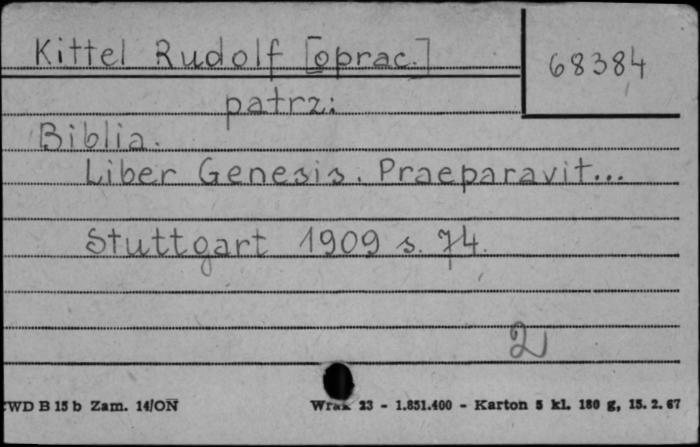 Kittel Rudolf [oprac.]
68384
patrz:
Biblia.
Liber Genesis. Praeparavit...
Stuttgart 1909 s. 74.
2
CWD B 15 b Zam. 14/ON
Wrak 23 - 1.851.400 - Karton 5 kl. 180 g, 15. 2. 67